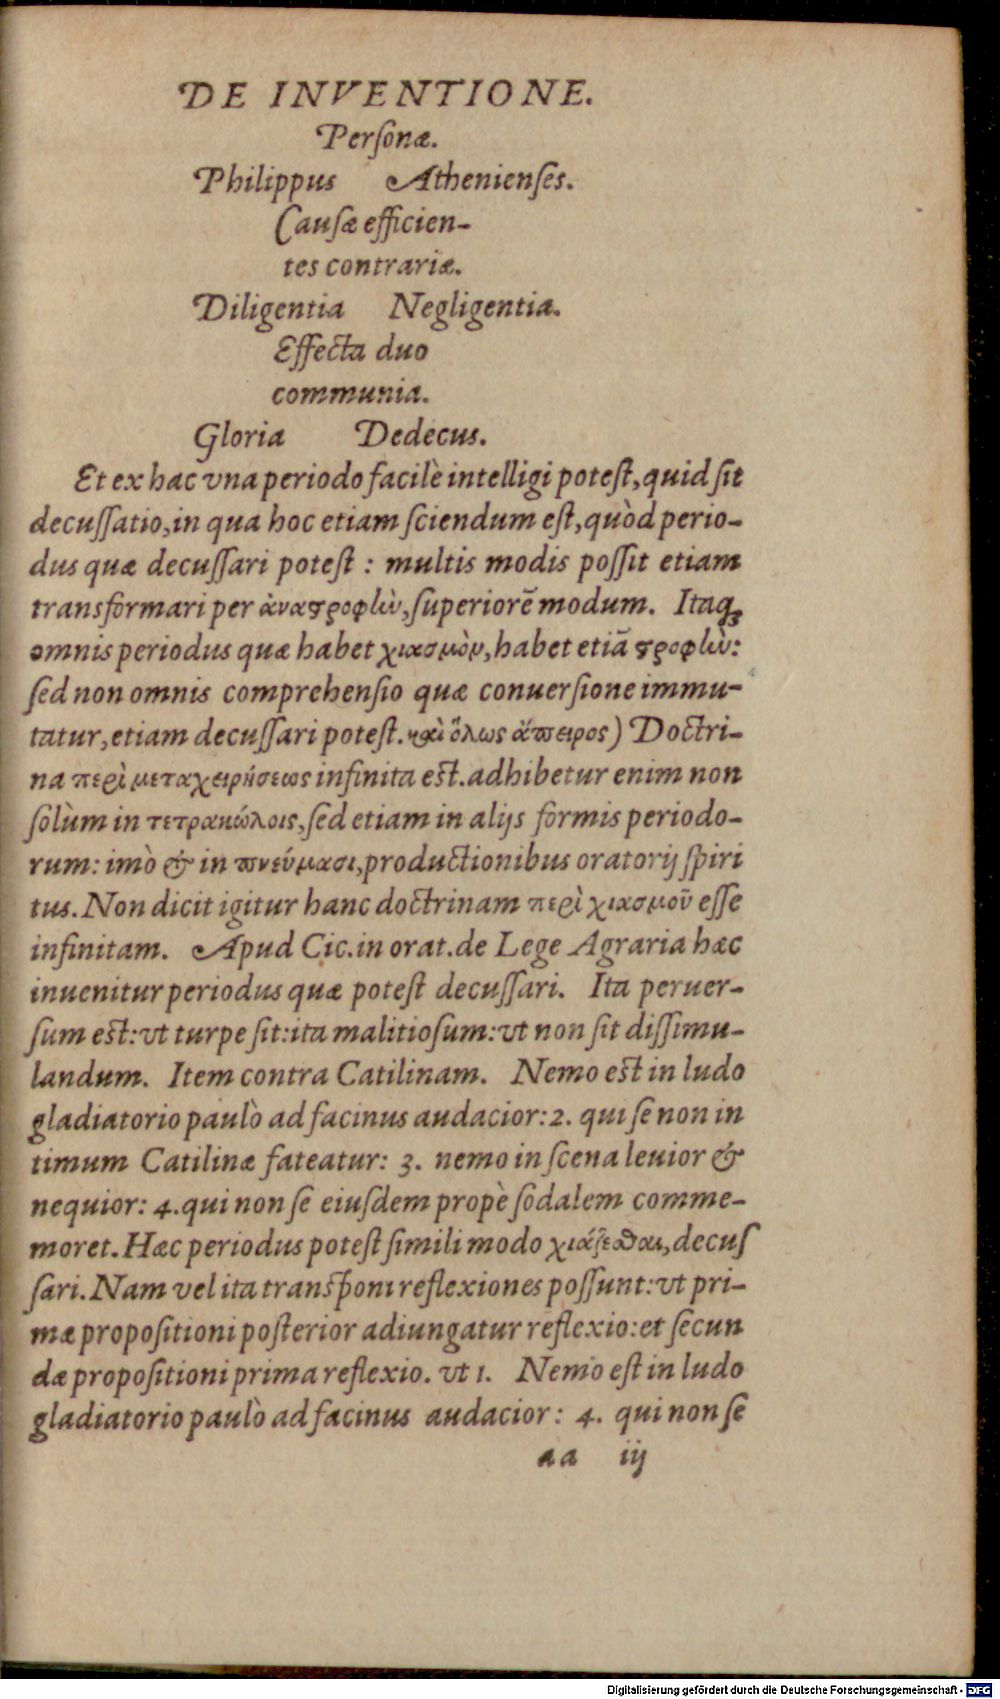 DE INVENTIONE.
Perſonæ.
Philippus Athenienſes.
Cauſæ efficien-
tes contrariæ.
Diligentia Negligentia.
Effecta duo
communia.
Gloria Dedecus.
Et ex hac vna periodo facilè intelligi poteſt, quid ſit
decuſſatio, in qua hoc etiam ſciendum eſt, quòd perio-
dus quæ decuſſari poteſt : multis modis poſſit etiam
transformari per ἀναστροφὼ, ſuperiorē modum. Itaq;
omnis periodus quæ habet χιασμὸν, habet etiā στροφὼ:
ſed non omnis comprehenſio quæ conuerſione immu-
tatur, etiam decuſſari poteſt. καὶ ὅλως ἄπειρος) Doctri-
na περὶ μεταχειρήσεως infinita eſt. adhibetur enim non
ſolùm in τετρακώλοις, ſed etiam in alijs formis periodo-
rum: imò & in πνεύμασι, productionibus oratorij ſpiri
tus. Non dicit igitur hanc doctrinam περὶ χιασμοῦ eſſe
infinitam. Apud Cic. in orat. de Lege Agraria hæc
inuenitur periodus quæ poteſt decuſſari. Ita peruer-
ſum eſt: vt turpe ſit: ita malitioſum: vt non ſit diſſimu-
landum. Item contra Catilinam. Nemo eſt in ludo
gladiatorio paulò ad facinus audacior: 2. qui ſe non in
timum Catilinæ fateatur: 3. nemo in ſcena leuior &
nequior: 4. qui non ſe eiuſdem propè ſodalem comme-
moret. Hæc periodus poteſt ſimili modo χιάζεσθαι, decuſ
ſari. Nam vel ita tranſponi reflexiones poſſunt: vt pri-
mæ propoſitioni poſterior adiungatur reflexio: et ſecun
dæ propoſitioni prima reflexio. vt 1. Nemo eſt in ludo
gladiatorio paulò ad facinus audacior: 4. qui non ſe
aa iij
Digitalisierung gefördert durch die Deutsche Forschungsgemeinschaft - DFG